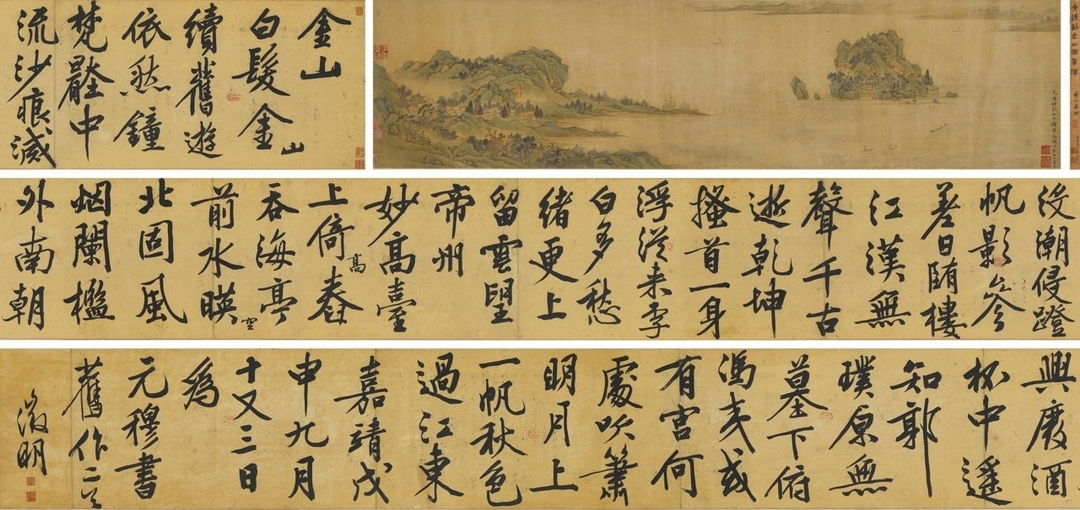 金山
白髮金山
續舊遊
依然鐘
梵中
流沙痕滅
沒潮侵磴
帆影參
差日樓
江漢無
聲千古
逝乾坤
搔首一身
浮從來李
白多愁
緒更上
留雲望
帝州
妙高臺
上倚高舂
吞海亭
前水暎空
北固風
烟闌檻
外南朝
興廢酒
杯中遙
知郭
璞原無
墓下俯
馮夷或
有宮何
處吹簫
明月上
一帆秋色
過江東
嘉靖戊
申九月
十又三日
為
元穆書
舊作二首
徵明